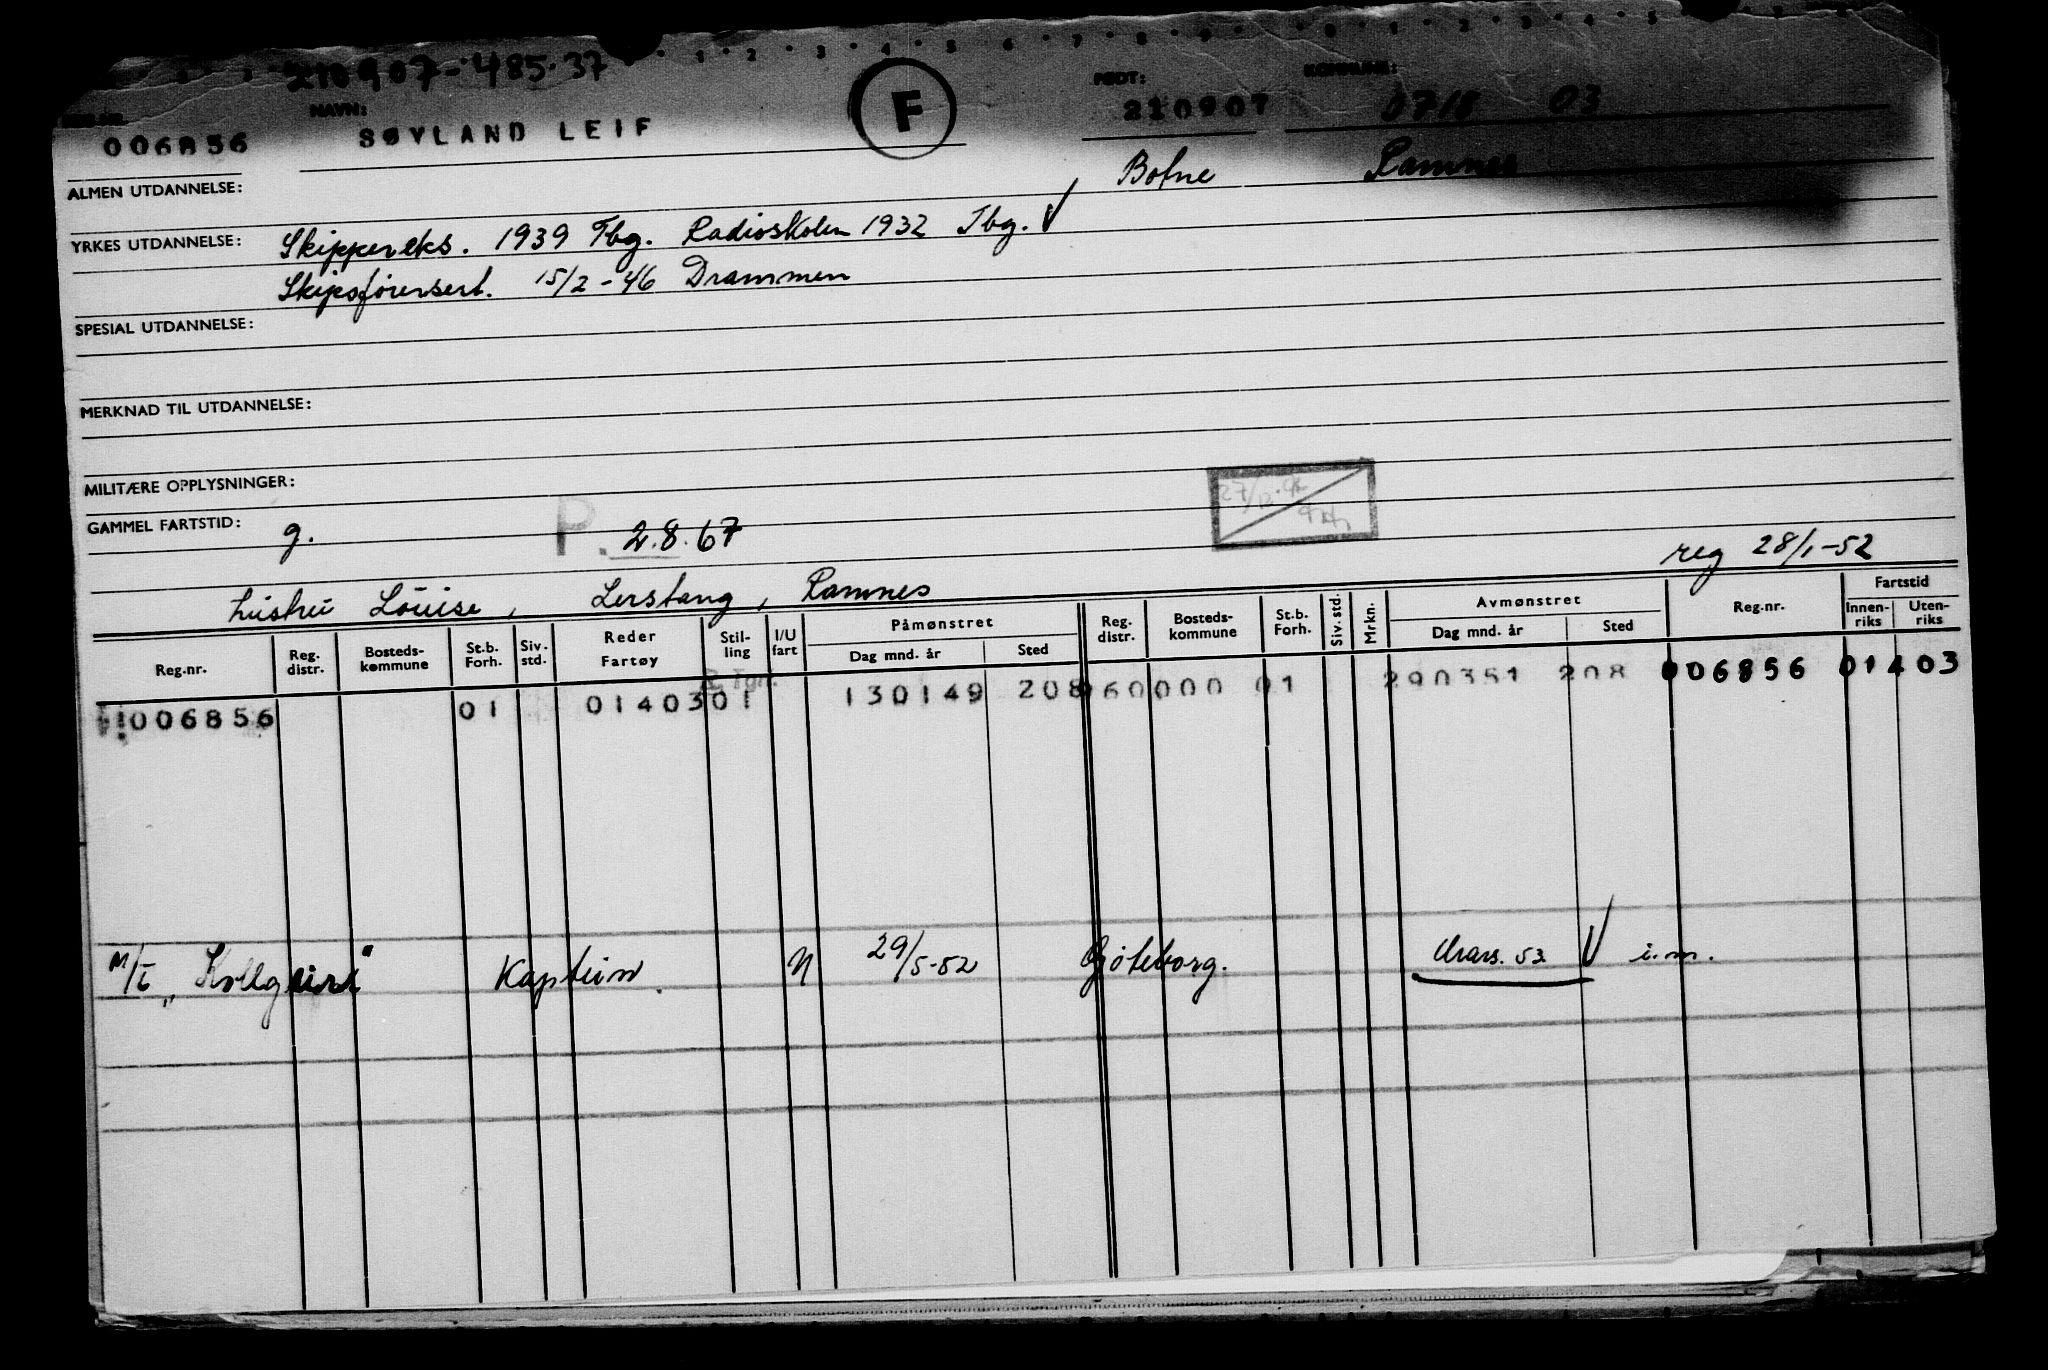 210907-485.37
REG.NR. NAVN: FØDT: KOMMUNE:
006856 SØYLAND LEIF F 210907 0718 03
ALMEN UTDANNELSE: Botne Ramnes
YRKES UTDANNELSE: Skippereks. 1939 Tbg. Radioskolen 1932 Tbg. V
Skipsførersert. 15/2-46 Drammen
SPESIAL UTDANNELSE:
MERKNAD TIL UTDANNELSE:
MILITÆRE OPPLYSNINGER:
GAMMEL FARTSTID: g. P. 2.8.67
reg 28/1-52
hustru Louise, Lerstang, Ramnes
Reg.nr. Reg. distr. Bosteds-kommune St.b. Forh. Siv. std. Reder Fartøy Stil-ling I/U fart Påmønstret Dag mnd. år Sted Reg. distr. Bosteds-kommune St.b. Forh. Siv. std. Mrkn. Avmønstret Dag mnd. år Sted Reg.nr. Fartstid Innen-riks Uten-riks
006856 01 01403 01 130149 208 060000 01 290351 208 006856 01403
M/T "Kollgrim" Kaptein N 29/5-52 Gøteborg. Mars. 53 V i.m.